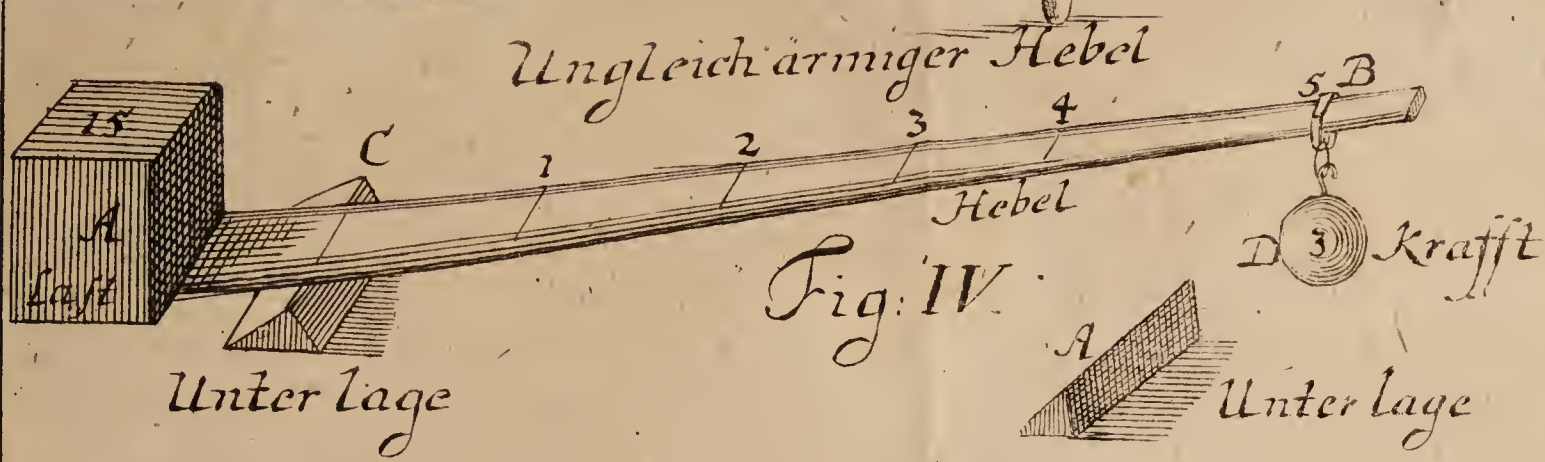 Ungleich ärmiger Hebel
15
A
Last
C
1
2
3
4
5
B
Hebel
D
3
Krafft
Fig: IV.
Unter lage
A
Unter lage